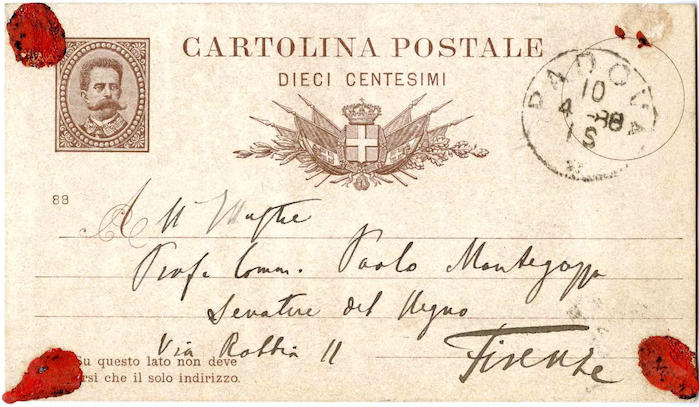 CARTOLINA POSTALE
DIECI CENTESIMI
PADOVA
10
4-88
1 S
88
A
Prof. Comm. Paolo Mantegazza
Senatore del Regno
Via Robbia 11
Firenze
Su questo lato non deve
rsi che il solo indirizzo.